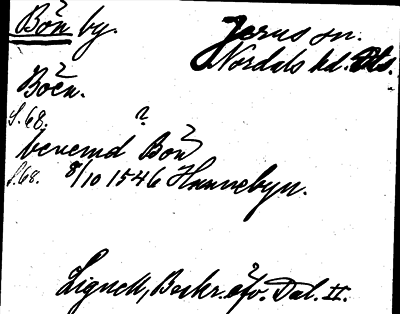 Bön by.
Järns sn.
Nordals hd. Dls.
Böen.
S. 68.
?
benemd Bön
S. 68. 8/10 1546 Hannebyn.
Lignell, Beskr. öfv. Dal. II.